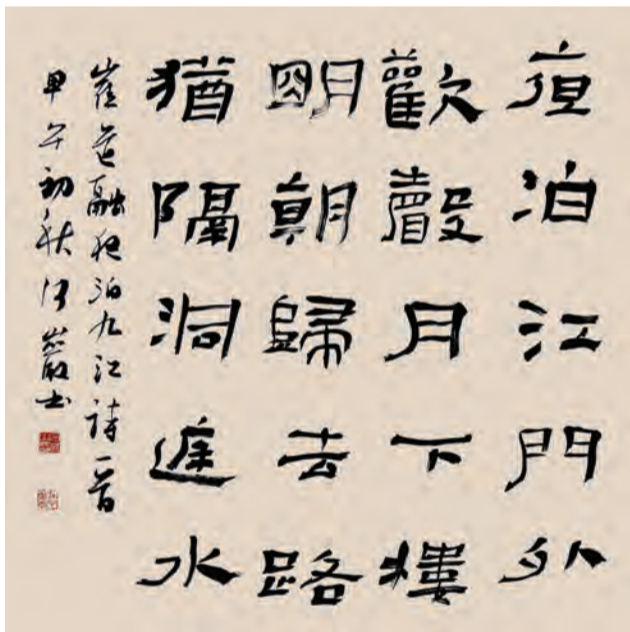 夜泊江門外
歡聲月下樓
明朝歸去路
猶隔洞庭水
崔道融夜泊九江詩一首
甲午初秋巖书